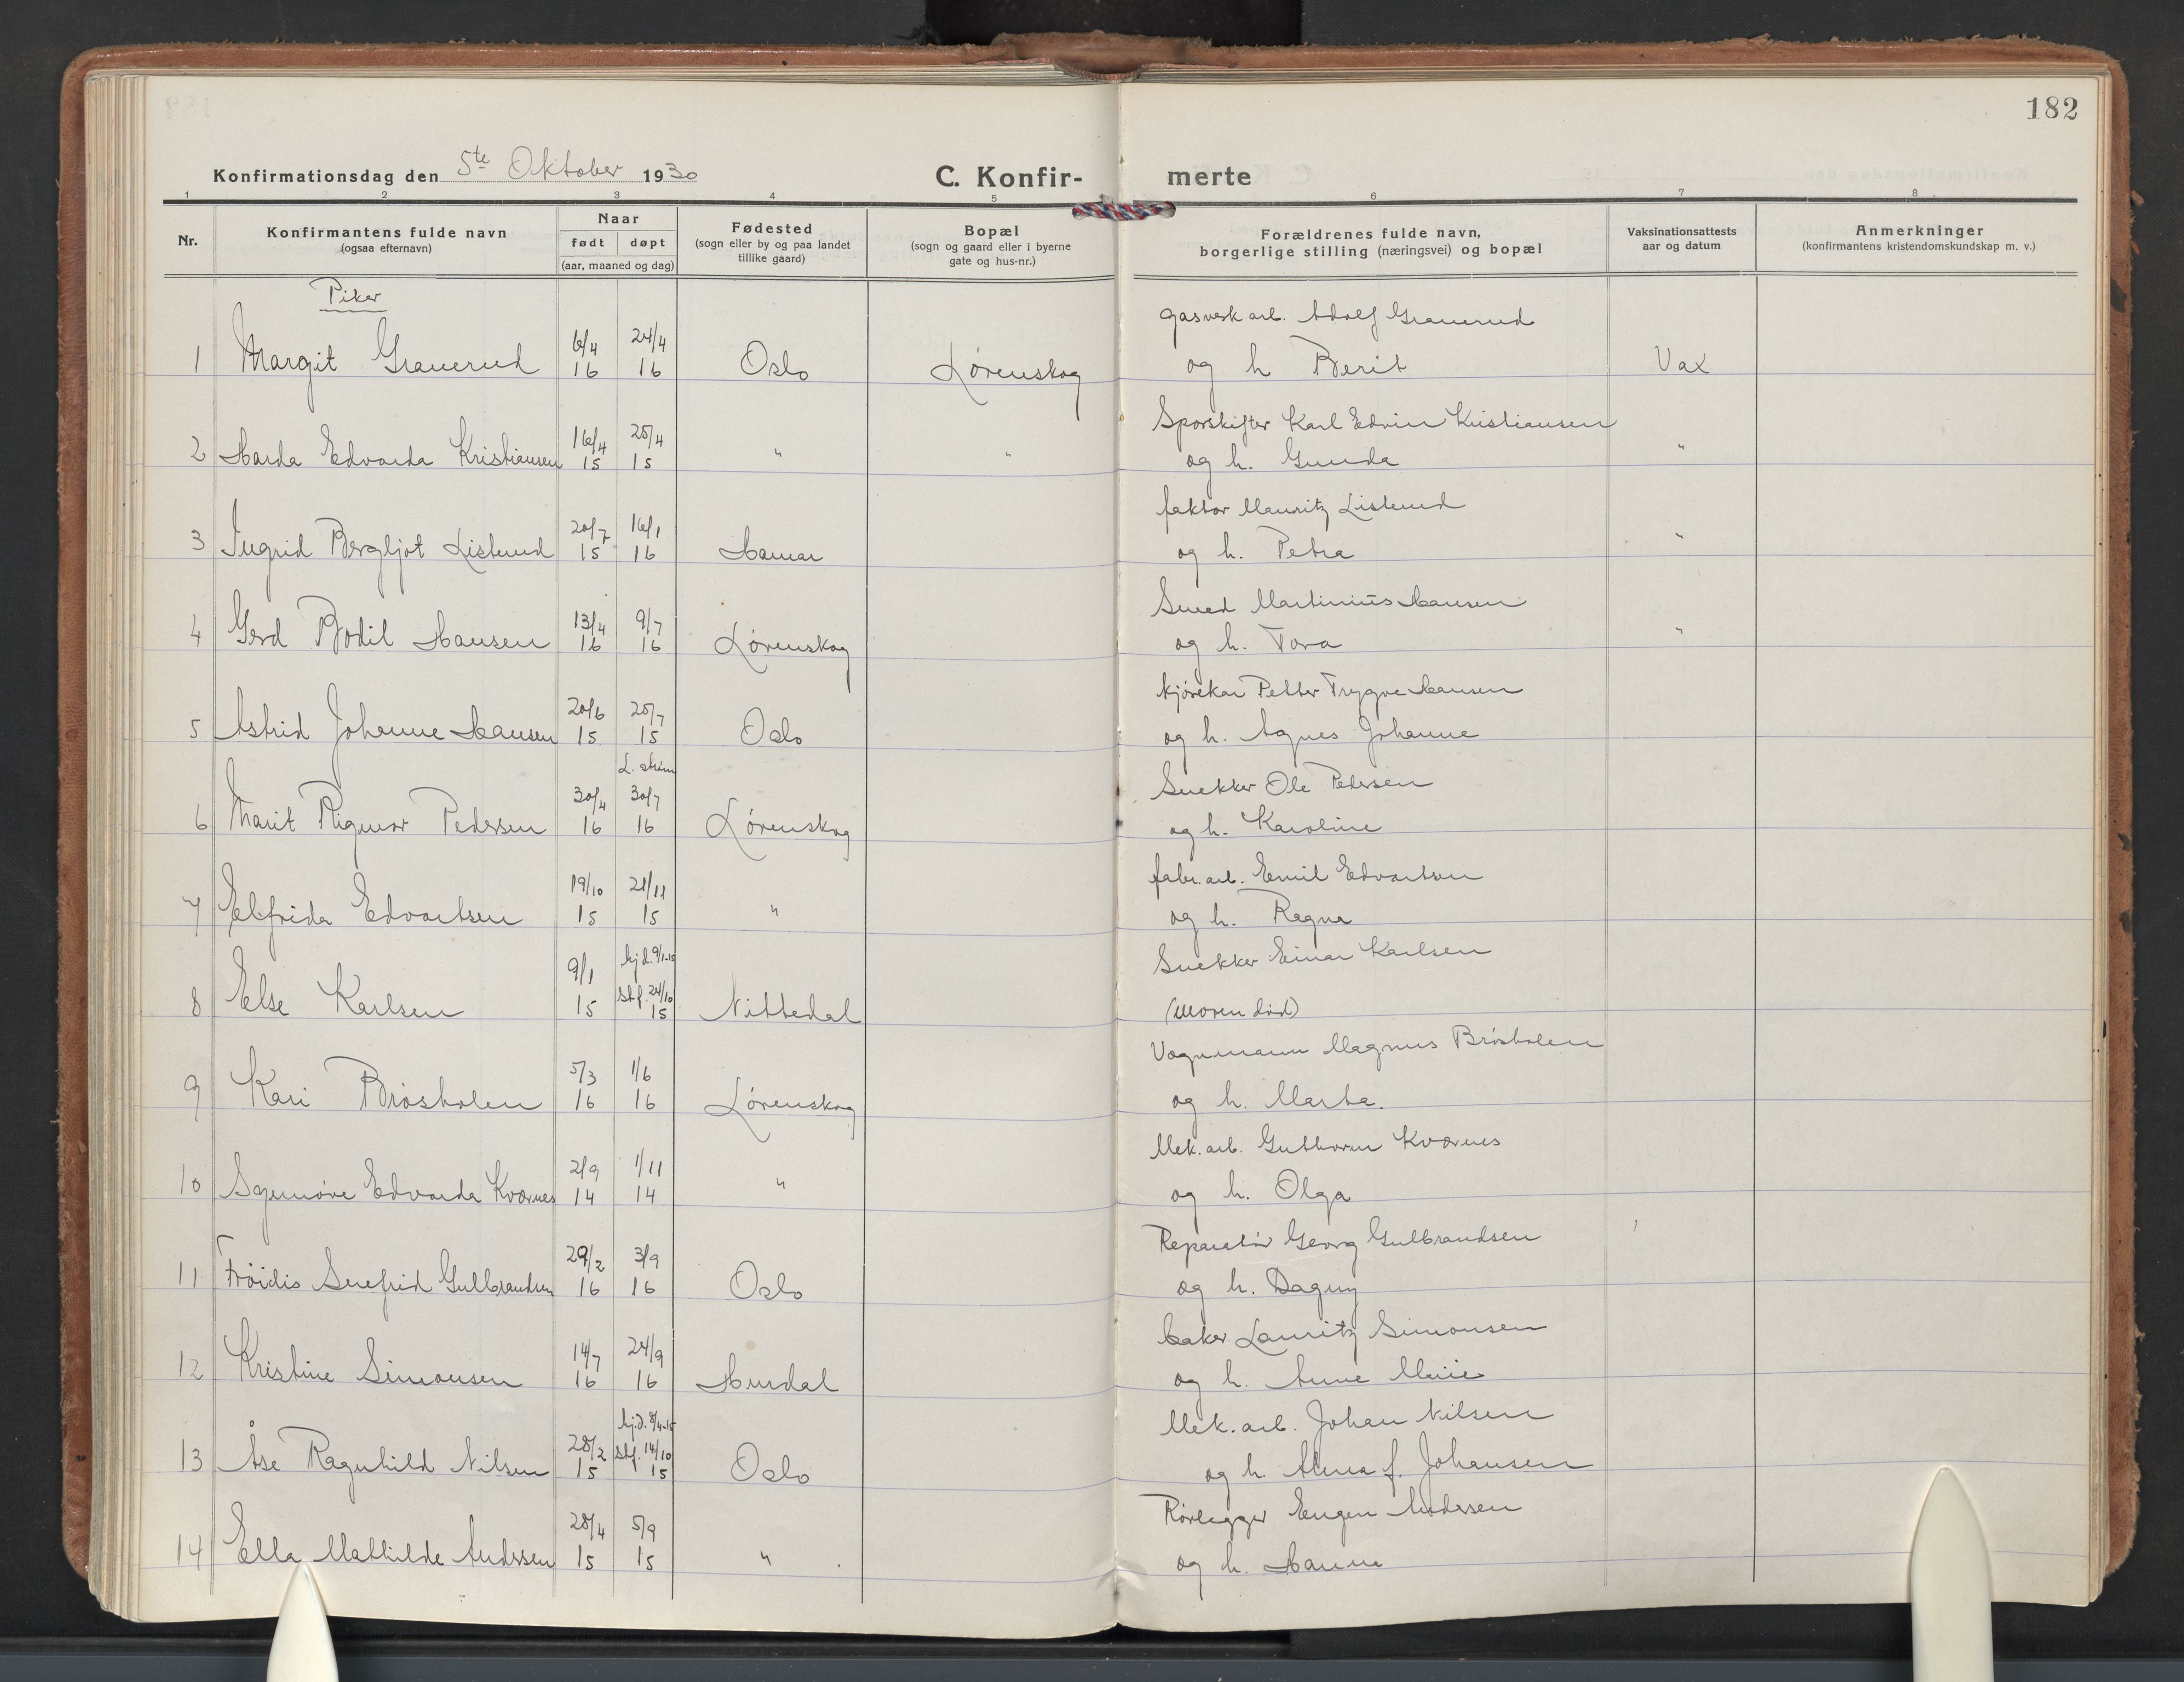 182
Konfirmationsdag den 5te Oktober 1930
C. Konfir- merte
1 2 3 4 5 6 7 8
Nr.
Konfirmantens fulde navn
(ogsaa efternavn)
Naar
født døpt
(aar, maaned og dag)
Fødested
(sogn eller by og paa landet
tillike gaard)
Bopæl
(sogn og gaard eller i byerne
gate og hus-nr.)
Forældrenes fulde navn,
borgerlige stilling (næringsvei) og bopæl
Vaksinationsattests
aar og datum
Anmerkninger
(konfirmantens kristendomskundskap m. v.)
Piker
6/4 24/4 gasverk arb. Adolf Grauerud
1 Margit Grauerud 16 16 Oslo Lørenskog og h Berit Vax
16/4 25/4 Sporskifter Karl Edvin Kristiansen
2 Harda Edvarda Kristiansen 15 15 " " og h. Gunda "
20/7 16/1 faktor Mauritz Listerud
3 Ingrid Bergljot Listerud 15 16 Hamar og h. Petra "
13/4 9/7 Smed Martinius Hansen
4 Gerd Bodil Hansen 16 16 Lørenskog og h. Tora "
20/6 25/7 kjørekar Petter Trygve Hansen
5 Astrid Johanne Hansen 15 15 Oslo og h. Agnes Johanne
L. strøm
30/4 30/7 Snekker Ole Pedersen
6 Marit Rigmor Pedersen 16 16 Lørenskog og h. Karoline
19/10 21/11 fabr. arb. Emil Edvartsen
7 Elfrida Edvartsen 15 15 " og h. Ragna
9/1 hj.d. 9/1-15 Snekker Einar Karlsen
stf. 24/10
8 Else Karlsen 15 15 Nittedal (moren død)
5/3 1/6 Vognmann Magnus Brøsholen
9 Kari Brøsholen 16 16 Lørenskog og h. Marta.
2/9 1/11 Mek. arb. Guthorm Kværnes
10 Synnøve Edvarda Kværnes 14 14 " og h. Olga
29/2 3/9 Reparatør Georg Gulbrandsen
11 Frøidis Snefrid Gulbrandsen 16 16 Oslo og h. Dagny
14/7 24/9 baker Lauritz Simonsen
12 Kristine Simonsen 16 16 Hurdal og h. Anne Marie
hj.d. 8/4-15 Mek. arb. Johan Nilsen
28/2 stf. 14/10
13 Åse Ragnhild Nilsen 15 15 Oslo og h. Alma f. Johansen
28/4 5/9 Rørlegger Eugen Andersen
14 Ella Mathilde Andersen 15 15 " og h. Hanna